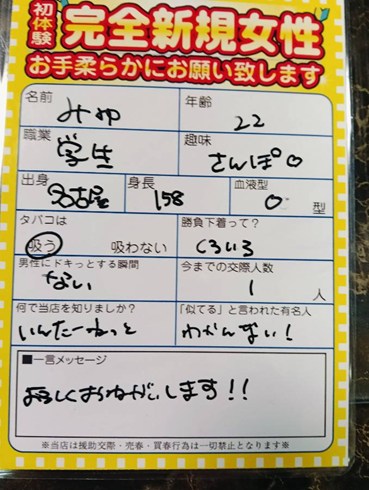 初体験 完全新規女性
お手柔らかにお願い致します
名前 みゆ 年齢 22
職業 学生 趣味 さんぽ
出身 名古屋 身長 158 血液型 O 型
タバコは 勝負下着って?
吸う 吸わない くろいろ
男性にドキっとする瞬間 今までの交際人数
ない 1 人
何で当店を知りましたか? 「似てる」と言われた有名人
いんたーねっと わかんない!
■一言メッセージ
よろしくおねがいします!!
※当店は援助交際・売春・買春行為は一切禁止となります※